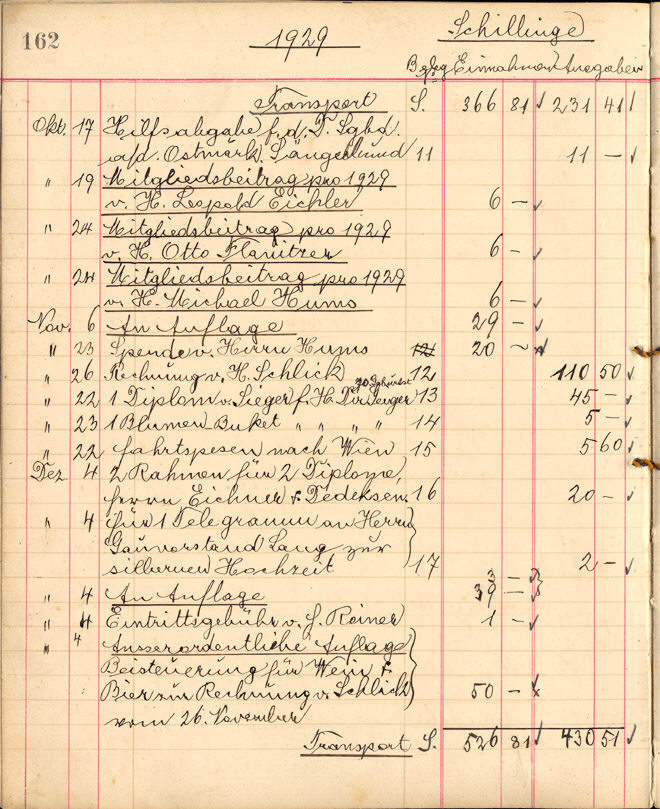 162
1929
Schillinge
Beleg Einnahmen Ausgaben
Transport S. 366 81 231 41
Okt. 17 Hilfsabgabe f. d. D. Sgbd.
a/d. Ostmärk. Sängerbund 11 11 —
" 19 Mitgliedsbeitrag pro 1929
v. H. Leopold Eichler 6 —
" 24 Mitgliedsbeitrag pro 1929
v. H. Otto Flanitzer 6 —
" 24 Mitgliedsbeitrag pro 1929
v. H. Michael Hums 6 —
Nov. 6 An Auflage 29 —
" 23 Spende v. Herrn Hums 12 20 —
" 26 Rechnung v. H. Schlick 12 110 50
70. Geburtst.
" 22 1 Diplom v. Sieger f. H. 13 45 —
" 23 1 Blumen Buket " " " " 14 5 —
" 22 Fahrtspesen nach Wien 15 5 60
Dez. 4 2 Rahmen für 2 Diplome,
Herrn Eichner & Dedeksen. 16 20 —
" 4 für 1 Telegramm an Herrn
Gauvorstand Lang zur
silbernen Hochzeit 17 2 —
3 —
" 4 An Auflage 39 —
" 4 Eintrittsgebühr v. H. Rainer 1 —
" 4 Ausserordentliche Auflage
Beisteuerung für Wein &
Bier zur Rechnung v. Schlick 50 —
vom 26. November
Transport S. 526 81 430 51